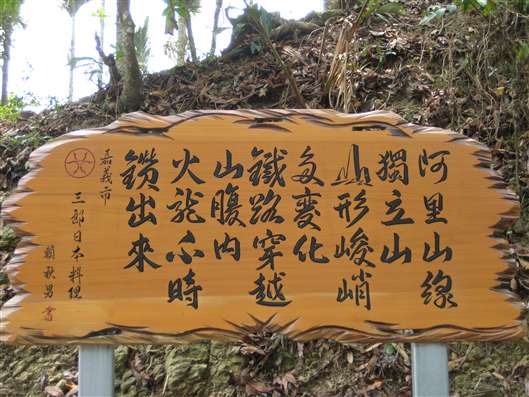 阿里山線
獨立山
山形峻峭
多變化
鐵路穿越
山腹內
火龍不時
鑽出來
嘉義市
三郎日本料理
賴秋男